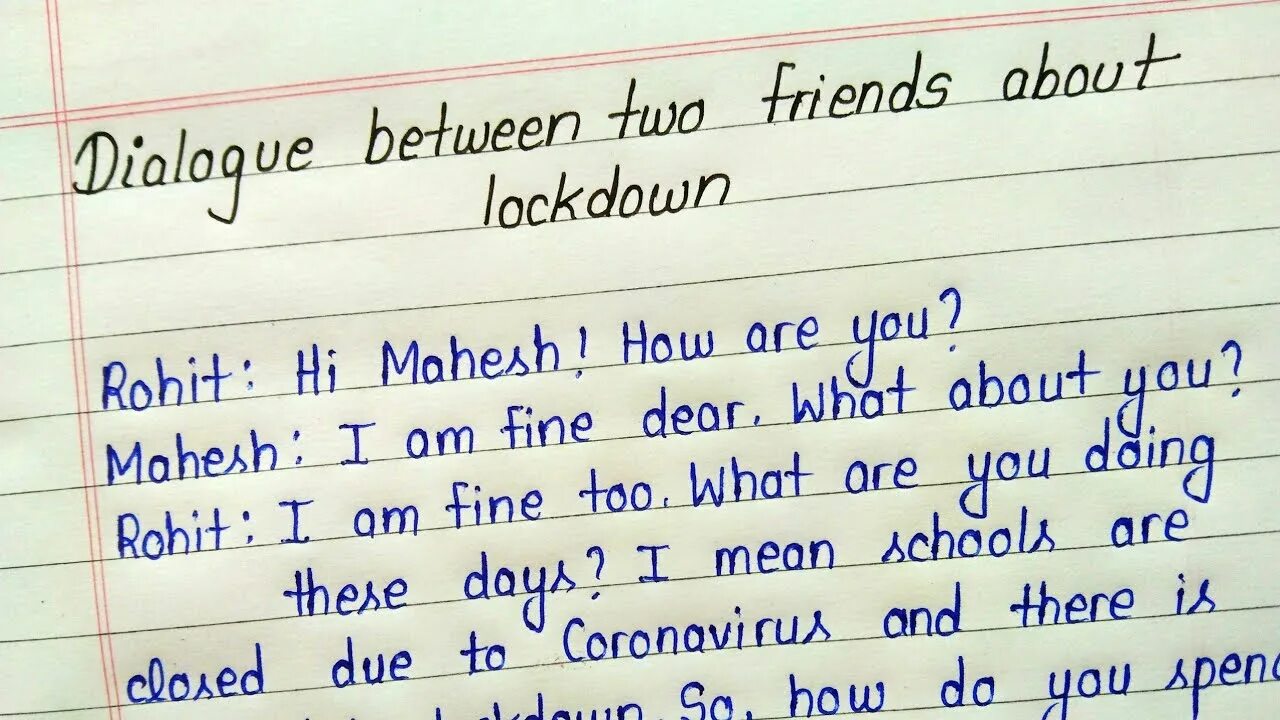 Dialogue between two friends about
lockdown
Rohit: Hi Mahesh! How are you?
Mahesh: I am fine dear. What about you?
Rohit: I am fine too. What are you doing
these days? I mean schools are
closed due to Coronavirus and there is
lockdown. So, how do you spend